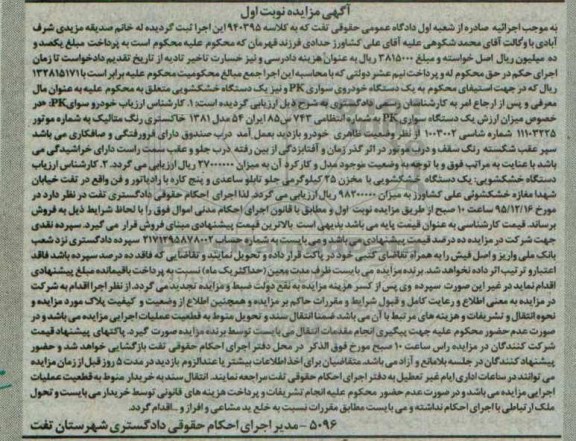 آگهی مزایده نوبت اول
به موجب اجرائیه صادره از شعبه اول دادگاه عمومی حقوقی تفت که به کلاسه ۹۴۰۳۹۵ این اجرا ثبت گردیده له خانم صدیقه مزیدی شرف
آبادی با وکالت آقای محمد شکوهی علیه آقای علی کشاورز حدادی فرزند قهرمان که محکوم علیه محکوم است به پرداخت مبلغ یکصد و
ده میلیون ریال اصل خواسته و مبلغ ۳۸۱۵۰۰۰ ریال به عنوان هزینه دادرسی و نیز خسارت تاخیر تادیه از تاریخ تقدیم دادخواست تا زمان
اجرای حکم در حق محکوم له و پرداخت نیم عشر دولتی که با محاسبه این اجرا جمع مبالغ محکومیت محکوم علیه برابر است با ۱۳۲۸۱۵۱۷۱
ریال که در جهت استیفای محکوم به یک دستگاه خودروی سواری PK و نیز یک دستگاه خشکشویی متعلق به محکوم علیه به عنوان مال
معرفی و پس از ارجاع امر به کارشناسان رسمی دادگستری به شرح ذیل ارزیابی گردیده است: ۱. کارشناس ارزیاب خودرو سوای PK: «در
خصوص میزان ارزش یک دستگاه سواری PK به شماره انتظامی ۷۴۳ س ۸۵ ایران ۵۴ مدل ۱۳۸۱ خاکستری رنگ متالیک به شماره موتور
۱۱۱۰۳۲۲۵ شماره شاسی ۱۰۰۳۰۰۲ از نظر وضعیت ظاهری خودرو بازدید بعمل آمد درب صندوق دارای فرورفتگی و صافکاری می باشد
سپر عقب شکسته رنگ سقف و درب موتور در اثر گذر زمان و آفتابزدگی از بین رفته درب جلو و عقب سمت راست دارای خراشیدگی می
باشد با عنایت به مراتب فوق و با توجه به وضعیت موجود مدل و کارکرد آن به میزان ۲۷۰۰۰۰۰۰ ریال ارزیابی می گردد. ۲. کارشناس ارزیاب
دستگاه خشکشویی: یک دستگاه خشکشویی با مخزن ۲۵ کیلوگرمی جلو تابلو ساعدی و پنج کاره با رادیاتور و فن واقع در تفت خیابان
شهدا مغازه خشکشوئی علی کشاورز به میزان ۹۸۳۰۰۰۰۰ ریال ارزیابی می گردد. لذا اجرای احکام حقوقی دادگستری تفت در نظر دارد در
مورخ ۹۵/۱۲/۱۶ ساعت ۱۰ صبح از طریق مزایده نوبت اول و مطابق با قانون اجرای احکام مدنی اموال فوق را با لحاظ شرایط ذیل به فروش
برساند. قیمت کارشناسی به عنوان قیمت پایه می باشد بدیهی است بالاترین قیمت پیشنهادی مبنای فروش قرار می گیرد. سپرده نقدی
جهت شرکت در مزایده ده درصد قیمت پیشنهادی می باشد و می بایست به شماره حساب ۲۱۷۱۲۹۵۸۷۸۰۰۲ سپرده دادگستری نزد شعب
بانک ملی واریز و اصل فیش را به همراه تقاضای کتبی خود در پاکت قرار داده و تحویل نمایند و تقاضایی که فاقد ده درصد سپرده باشد فاقد
اعتبار و ترتیب اثر داده نخواهد شد. برنده مزایده می بایست ظرف مدت معین (حداکثر یک ماه) نسبت به پرداخت باقیمانده مبلغ پیشنهادی
اقدام نماید در غیر این صورت سپرده وی پس از کسر هزینه مزایده به نفع دولت ضبط و مزایده تجدید می گردد. از نظر اجرا اقدام به شرکت
در مزایده به معنی اطلاع و رعایت کامل و قبول شرایط و مقررات حاکم بر مزایده و همچنین اطلاع از وضعیت و کیفیت پلاک مورد مزایده و
نحوه انتقال و تشریفات و هزینه های مرتبط با آن می باشد ضمنا انتقال سند و تحویل منوط به قطعیت عملیات اجرایی مزایده می باشد و در
صورت عدم حضور محکوم علیه جهت پیگیری انجام مقدمات انتقال می بایست توسط برنده مزایده صورت گیرد. پاکتهای پیشنهاد قیمت
شرکت کنندگان در مزایده راس ساعت ۱۰ صبح مورخ فوق الذکر در محل دفتر اجرای احکام حقوقی تفت بازگشایی خواهد شد و حضور
پیشنهاد کنندگان در جلسه بلامانع و آزاد می باشد. متقاضیان برای اخذ اطلاعات بیشتر یا عنداللزوم بازدید در مدت ۵ روز قبل از زمان مزایده
می توانند در ساعات اداری ایام غیر تعطیل به دفتر اجرای احکام حقوقی تفت مراجعه نمایند. انتقال سند به خریدار منوط به قطعیت عملیات
اجرایی مزایده می باشد و در صورت عدم حضور محکوم علیه انجام تشریفات و پرداخت هزینه های قانونی توسط خریدار می بایست و تحول
ملک ارتباطی با اجرای احکام نداشته و می بایست مطابق مقررات نسبت به خلع ید مشاعی و افراز و ... اقدام گردد.
۵۰۹۶ - مدیر اجرای احکام حقوقی دادگستری شهرستان تفت